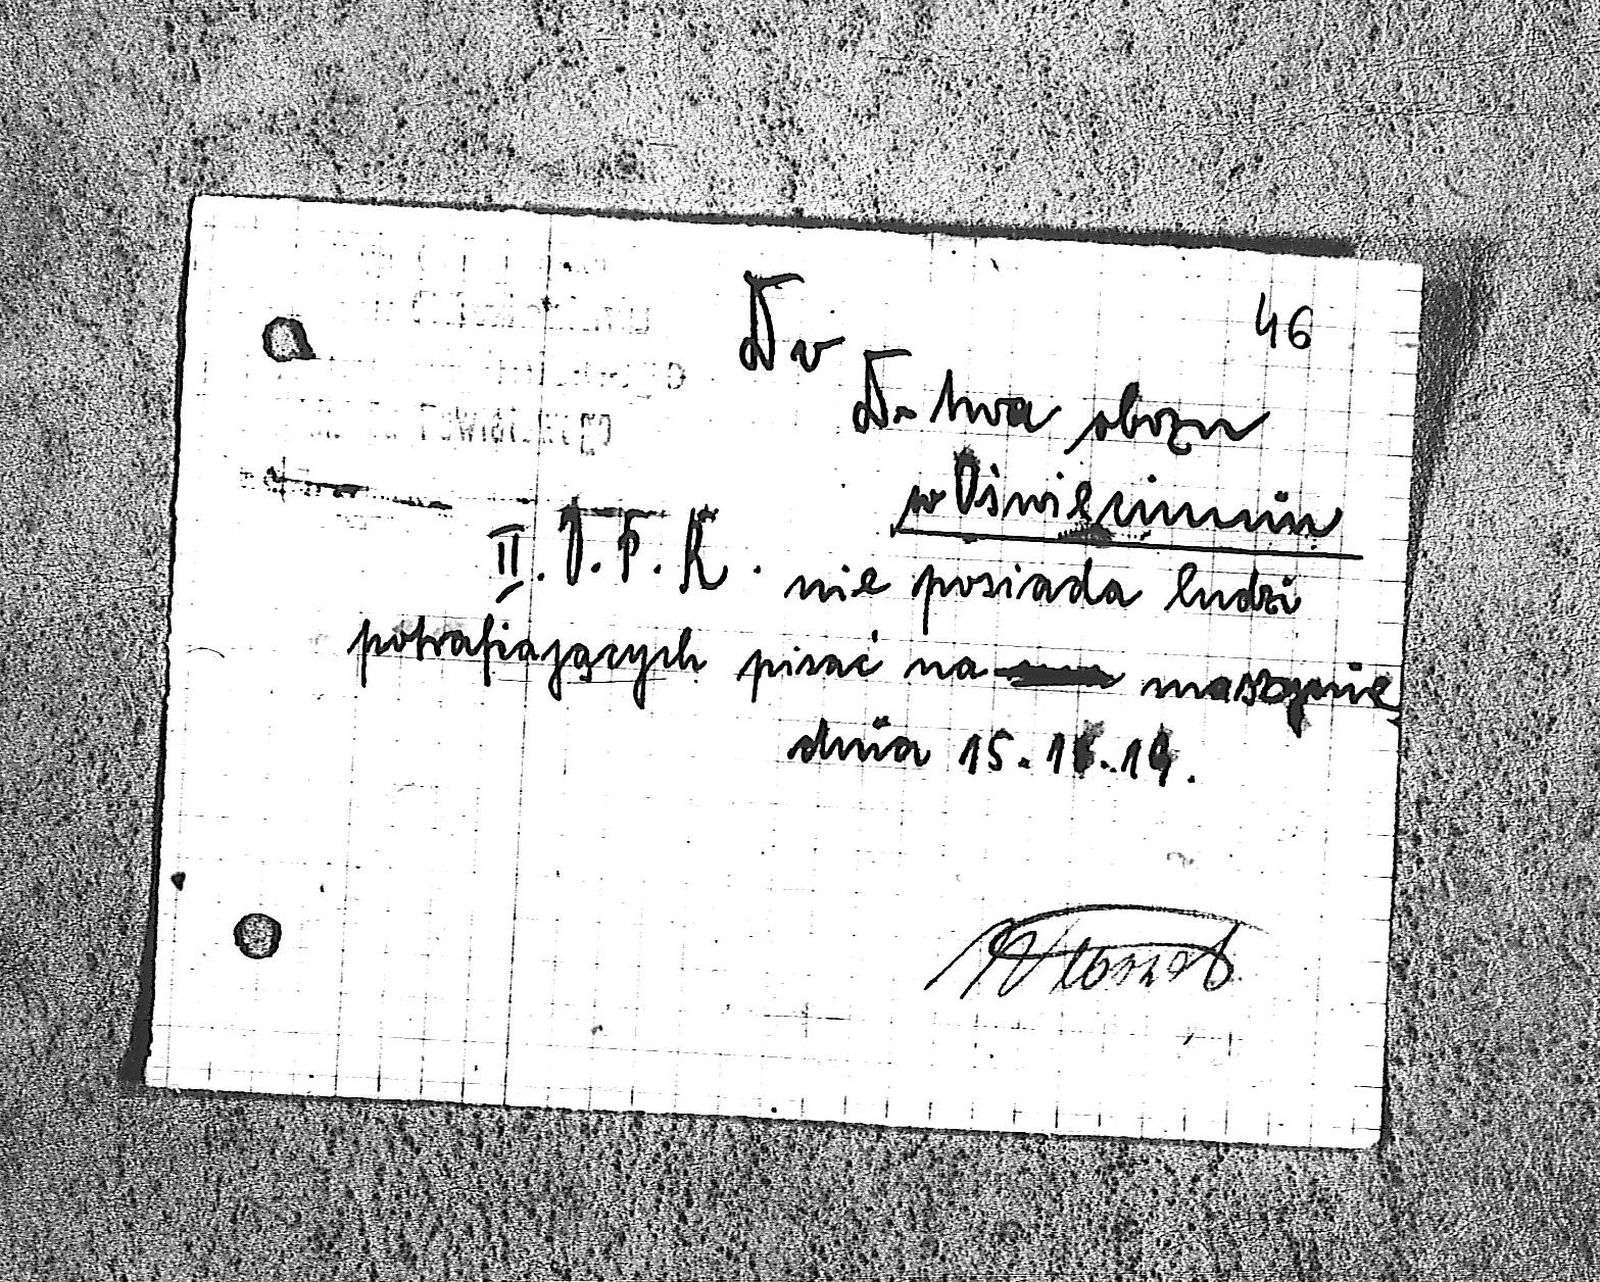 46
Do
D-twa obozu
w Oświęcimiu
II. O. P. K. nie posiada ludzi
potrafiających pisać na maszynie
dnia 15.11.19.